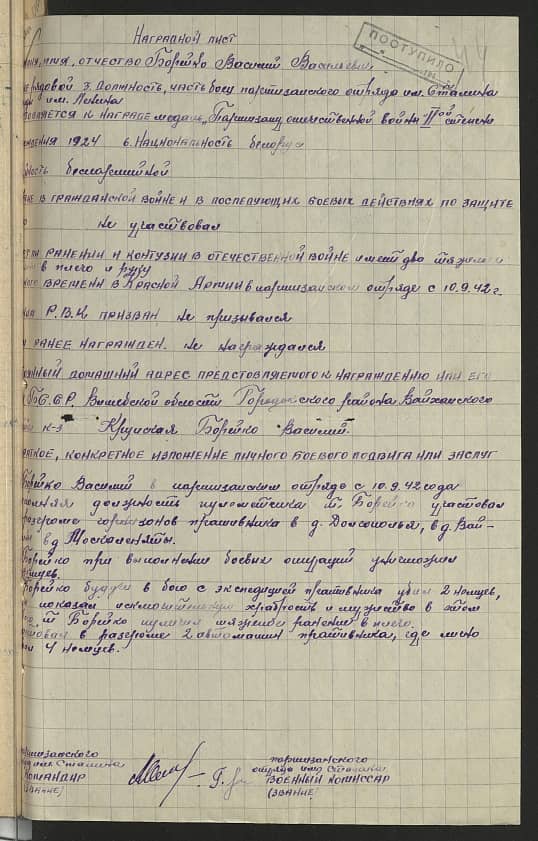 НАГРАДНОЙ ЛИСТ
ПОСТУПИЛО
имя, ОТЧЕСТВО Борейко Василий Васильевич
рядовой 3. ДОЛЖНОСТЬ, ЧАСТЬ боец партизанского отряда им. Сталина
им. Ленина
К НАГРАДЕ медаль „Партизану отечественной войны II ой степени
1924 6. НАЦИОНАЛЬНОСТЬ белорус
беспартийной
В ГРАЖДАНСКОЙ ВОЙНЕ И В ПОСЛЕДУЮЩИХ БОЕВЫХ ДЕЙСТВИЯХ ПО ЗАЩИТЕ
Не участвовал
РАНЕНИИ И КОНТУЗИИ В ОТЕЧЕСТВЕННОЙ ВОЙНЕ имеет два тяжелых
в плечо и руку
ВРЕМЕНИ В КРАСНОЙ АРМИИ в партизанском отряде с 10.9.42г.
Р.В.К ПРИЗВАН Не призывался
РАНЕЕ НАГРАЖДЕН. Не награждался
ДОМАШНИЙ АДРЕС ПРЕДСТОВЛЯЕМОГО К НАГРАЖДЕНИЮ ИЛИ ЕГО
Б.С.С.Р. Витебской области Городокского района Вайханского
к-з Крупская Борейко Василий.
КОНКРЕТНОЕ ИЗЛОЖЕНИЕ ЛИЧНОГО БОЕВОГО ПОДВИГА ИЛИ ЗАСЛУГ
Борейко Василий в партизанском отряде с 10.9.42 года
должность пулеметчика т. Борейко участвовал
гарнизонов противника в д. Долгополья, в д. Вай-
в д. Москаленяты.
Борейко при выполнение боевых операций уничтожил
немцев.
Борейко будучи в бою с экспедицией противника убил 2 немцев,
показал храбрость и мужество в этом
т Борейко получил тяжелое ранение в плечо.
в разгроме 2 автомашин противника, где лично
4 немцев.
партизанского
им. Сталина
КОМАНДИР
(ЗВАНИЕ)
партизанского
отряда им. Сталина
ВОЕННЫЙ КОМИССАР
(ЗВАНИЕ)